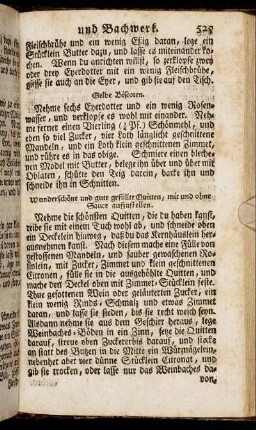 und Bachwerk. 523
Fleischbrühe und ein wenig Eßig daran, lege ein
Stücklein Butter dazu, und lasse es miteinander ko-
chen. Wenn du anrichten willst, so zerklopfe zwey
oder drey Eyerdotter mit ein wenig Fleischbrühe,
giesse sie auch an die Eyer, und gib sie auf den Tisch.
Gelbe Biscoten.
Nehme sechs Eyerdotter und ein wenig Rosen-
wasser, und verklopfe es wohl mit einander. Neh-
me ferner einen Vierling (¼ Pf.) Schönmehl, und
eben so viel Zucker, vier Loth länglicht geschnittene
Mandeln, und ein Loth klein geschnittenen Zimmet,
und rühre es in das obige. Schmiere einen bleche-
nen Model mit Butter, belege ihn über und über mit
Oblaten, schütte den Teig darein, backe ihn und
schneide ihn in Schnitten.
Wunderschöne und gute gefüllte Quitten, mit und ohne
Sauce aufzustellen.
Nehme die schönsten Quitten, die du haben kanst,
reibe sie mit einem Tuch wohl ab, und schneide oben
ein Deckelein hinweg, daß du das Kernhäuslein her-
ausnehmen kanst. Nach diesem mache eine Fülle von
gestossenen Mandeln, und sauber gewaschenen Ro-
sinlein, mit Zucker, Zimmet und klein geschnittenen
Citronat, fülle sie in die ausgehöhlte Quitten, und
mache den Deckel oben mit Zimmet-Stücklein feste.
Thue gesottenen Wein oder geläuterten Zucker, ein
klein wenig Rinds-Schmalz und etwas Zimmet
daran, und lasse sie sieden, bis sie recht weich seyn.
Alsdann nehme sie aus dem Geschirr heraus, lege
Weinbaches-Böden in ein Zinn, setze die Quitten
darauf, streue oben Zuckererbis darauf, und stecke
an statt des Butzen in die Mitte ein Würznägelein,
nebenher aber vier dünne Stücklein Citronat, und
gib sie trocken, oder lasse nur das Weinbaches da-
von,